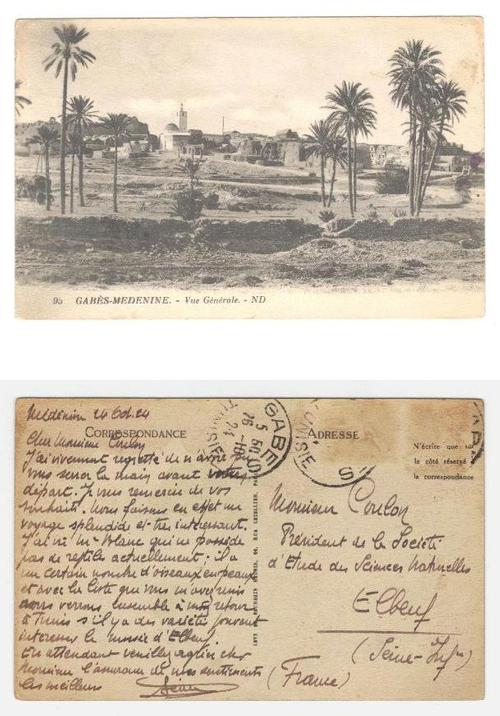 95 GABÈS-MEDENINE. - Vue Générale. - ND
Médenine 24 Oct. 24
CORRESPONDANCE
Cher Monsieur Coulon
J'ai vivement regretté de n'avoir pu
vous serrer la main avant votre
départ. Je vous remercie de vos
souhaits. Nous faisons en effet un
voyage splendide et très intéressant.
J'ai vu Mr Blanc qui ne possède
pas de reptiles actuellement; il a
un certain nombre d'oiseaux en peaux
et avec la liste que vous m'avez remis
nous verrons ensemble à mon retour
à Tunis s'il y a des variétés pouvant
intéresser le musée d'Elbeuf.
En attendant veuillez agréer cher
Monsieur l'assurance de mes sentiments
les meilleurs
GABES
TUNISIE
ADRESSE
N'écrire que sur
le côté réservé
la correspondance
Monsieur Coulon
Président de la Société
d'Etude des Sciences Naturelles
Elbeuf
(Seine-Infre)
(France)